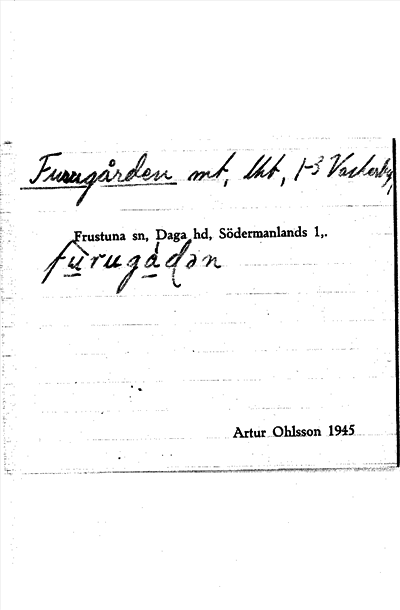 Furugården mt, lht, 1-3 Vackerby,
Frustuna sn, Daga hd, Södermanlands l,.
furugådən
Artur Ohlsson 1945